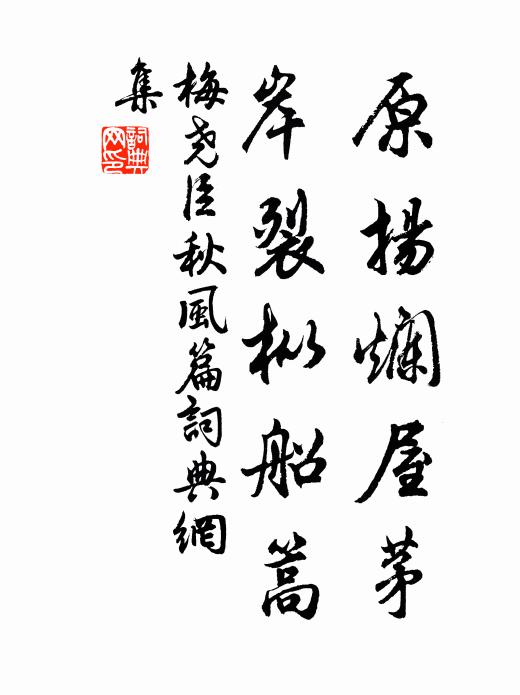 原揚爛屋茅
岸裂枞船篙
梅尧臣秋風篇詞典網
集
詞典網印